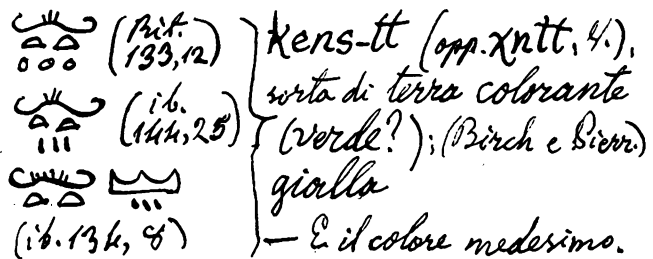 (Rit. 133,12)
(ib. 144,25)
(ib. 134, 8)
Kens-tt (opp. χntt, 4.),
sorta di terra colorante
(verde?); (Birch e Pierr.)
gialla
— E il colore medesimo.